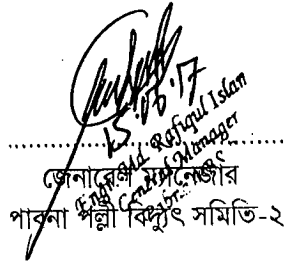 15.06.17
Engr. Md. Rafiqul Islam
General Manager
জেনারেল ম্যানেজার
পাবনা পল্লী বিদ্যুৎ সমিতি-২